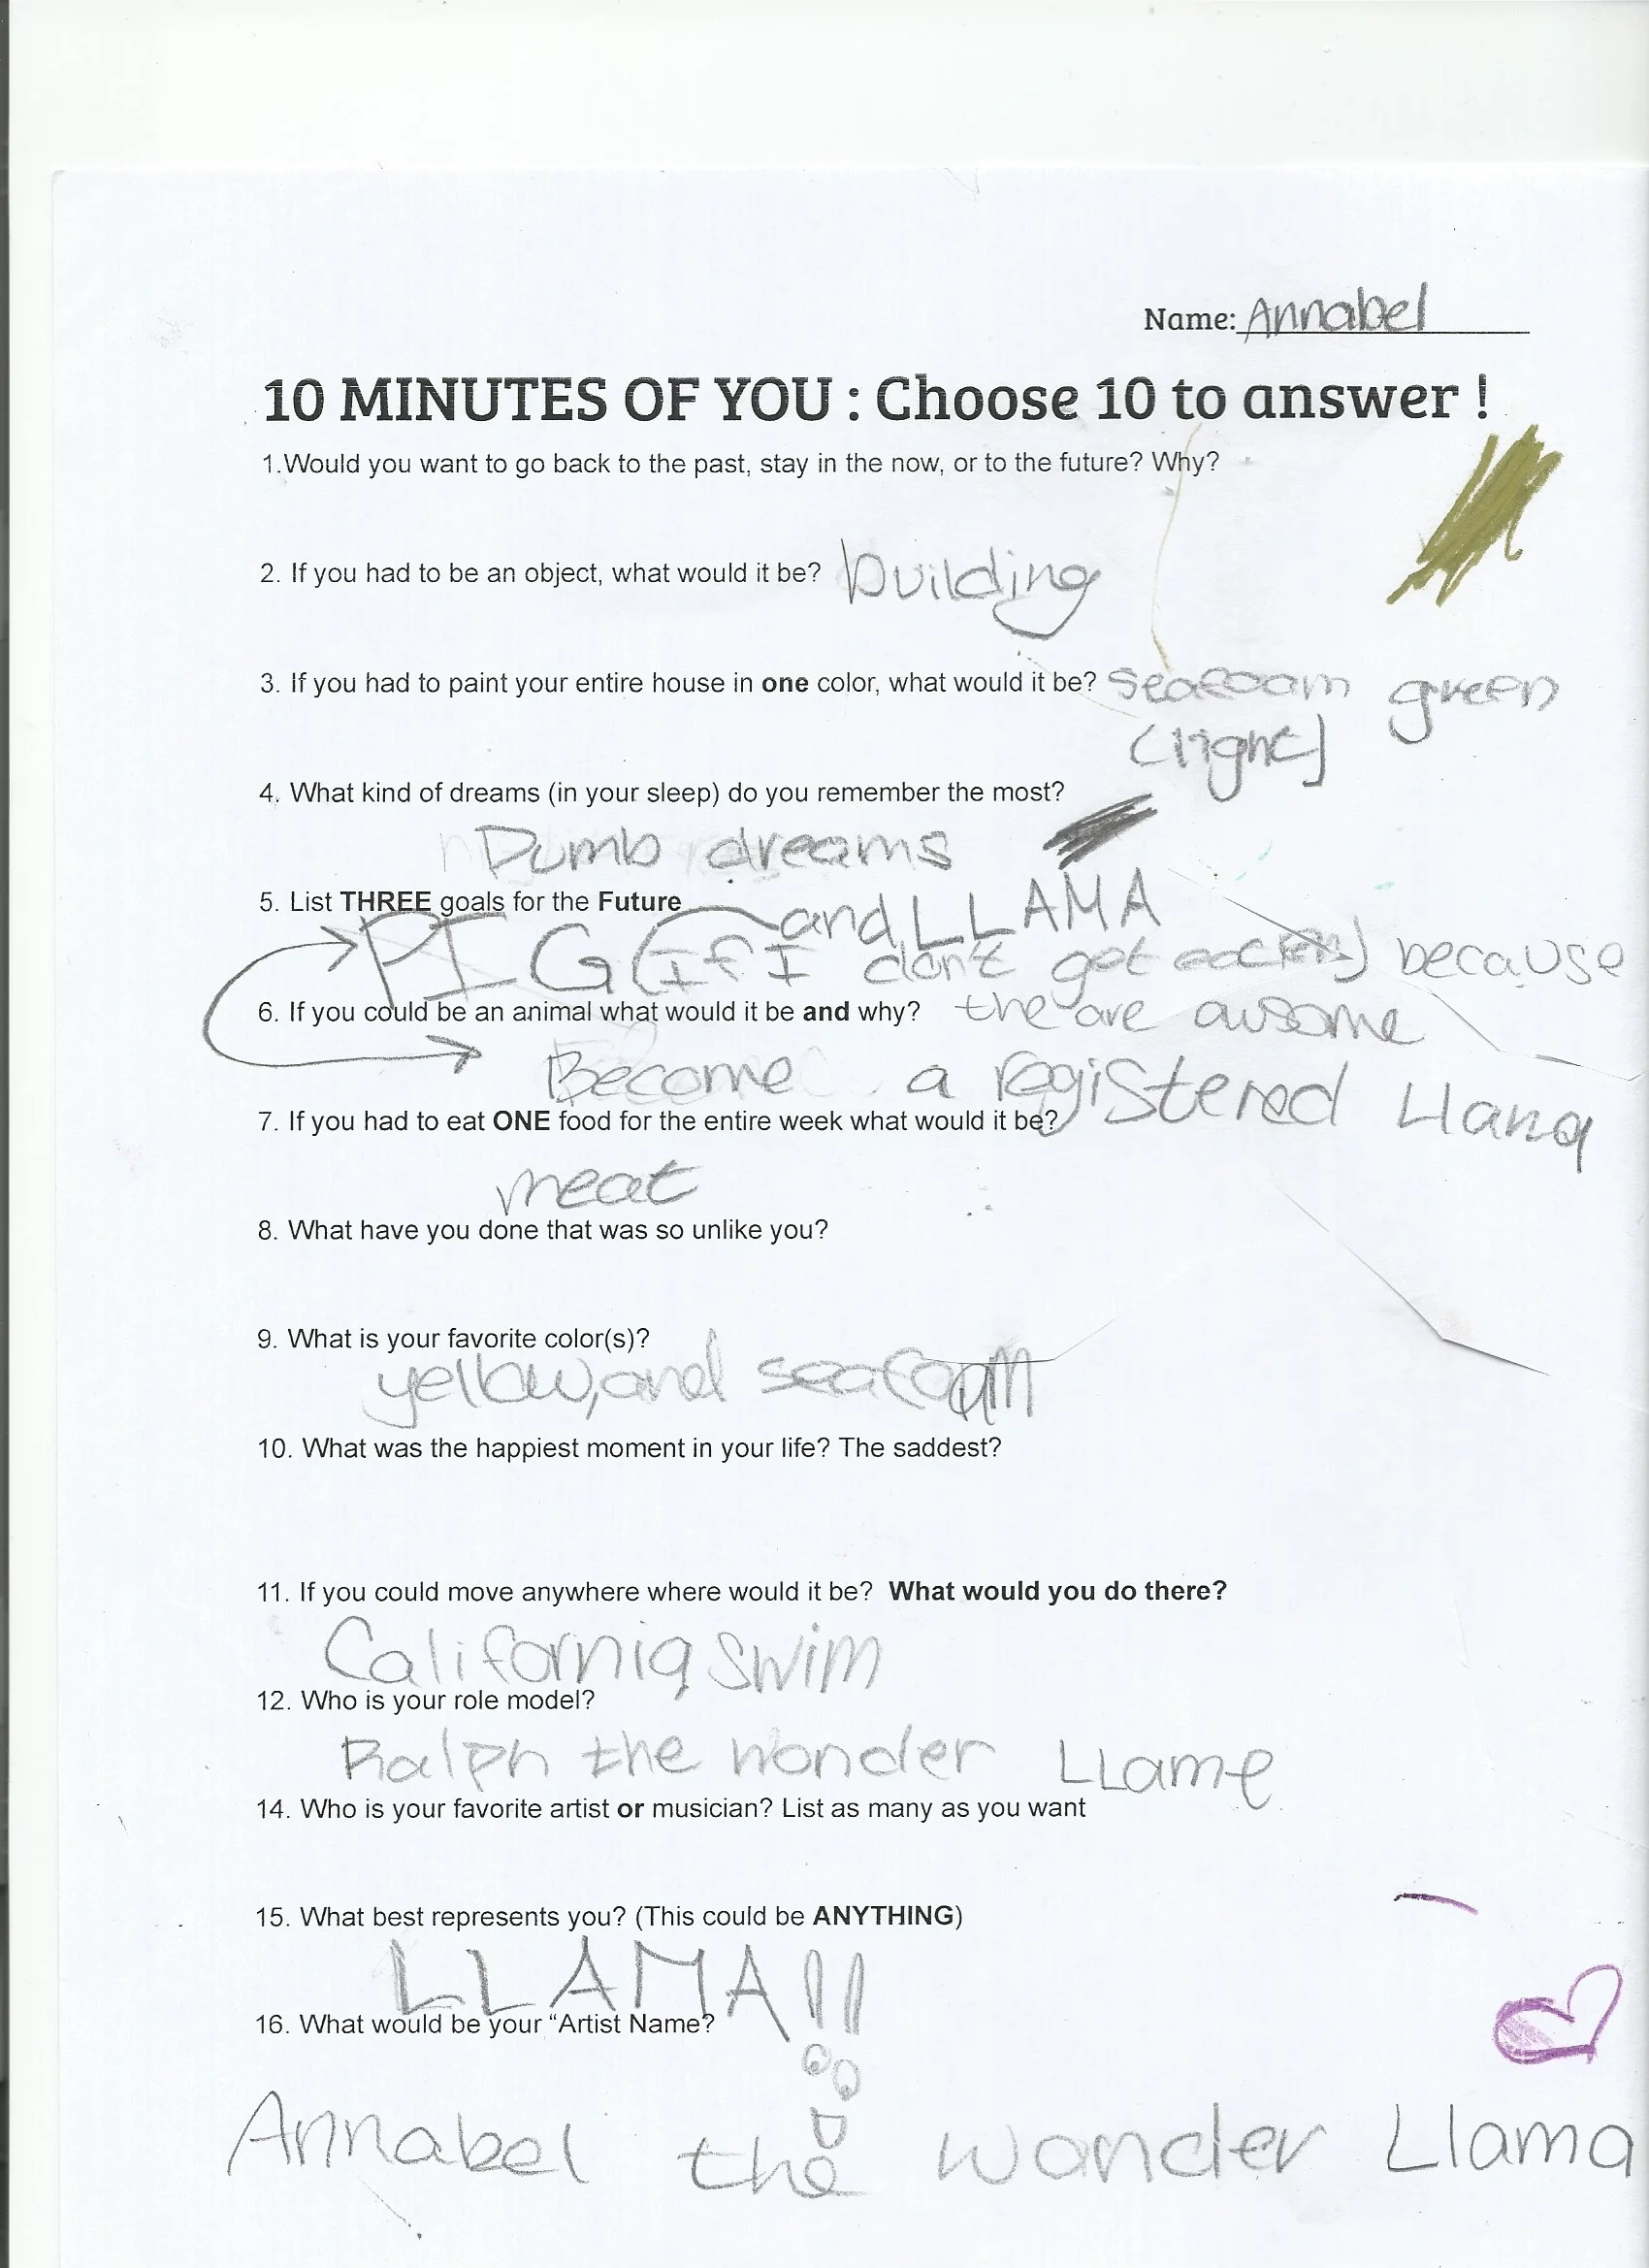 Name: Annabel
10 MINUTES OF YOU : Choose 10 to answer !
1.Would you want to go back to the past, stay in the now, or to the future? Why?
2. If you had to be an object, what would it be? building
3. If you had to paint your entire house in one color, what would it be? seafoam green
(light)
4. What kind of dreams (in your sleep) do you remember the most?
Dumb dreams
5. List THREE goals for the Future
and LLAMA
PIG (If I don't get because
6. If you could be an animal what would it be and why? the are awsome
Become a registered Llama
7. If you had to eat ONE food for the entire week what would it be?
meat
8. What have you done that was so unlike you?
9. What is your favorite color(s)?
yellow, and seafoam
10. What was the happiest moment in your life? The saddest?
11. If you could move anywhere where would it be? What would you do there?
California swim
12. Who is your role model?
Ralph the wonder LLama
14. Who is your favorite artist or musician? List as many as you want
15. What best represents you? (This could be ANYTHING)
LLAMA!!
16. What would be your “Artist Name?
Annabel the wonder Llama